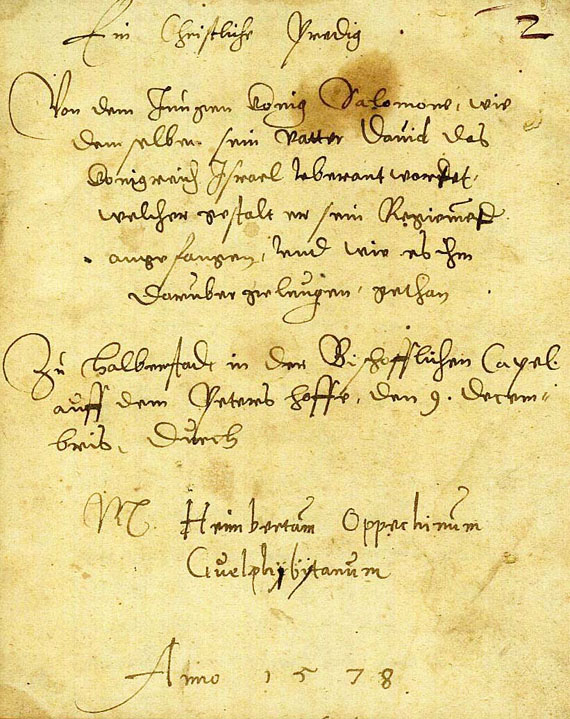 Ein Christliche Predig
2
Von dem Jungen König Salomone, wie
demselben sein Vatter Dauid das
Königreich Israel vberantwortet,
welcher gestalt er sein Regiment
angefangen, vnd wie es ihm
darüber gelungen, gethan
Zu Halberstadt in der Bischofflichen Capel
auff dem Peters hoffe, den 9. Decem-
bris, Durch
M. Heimbertum Oppechinum
Guelphybytanum
Anno 1578